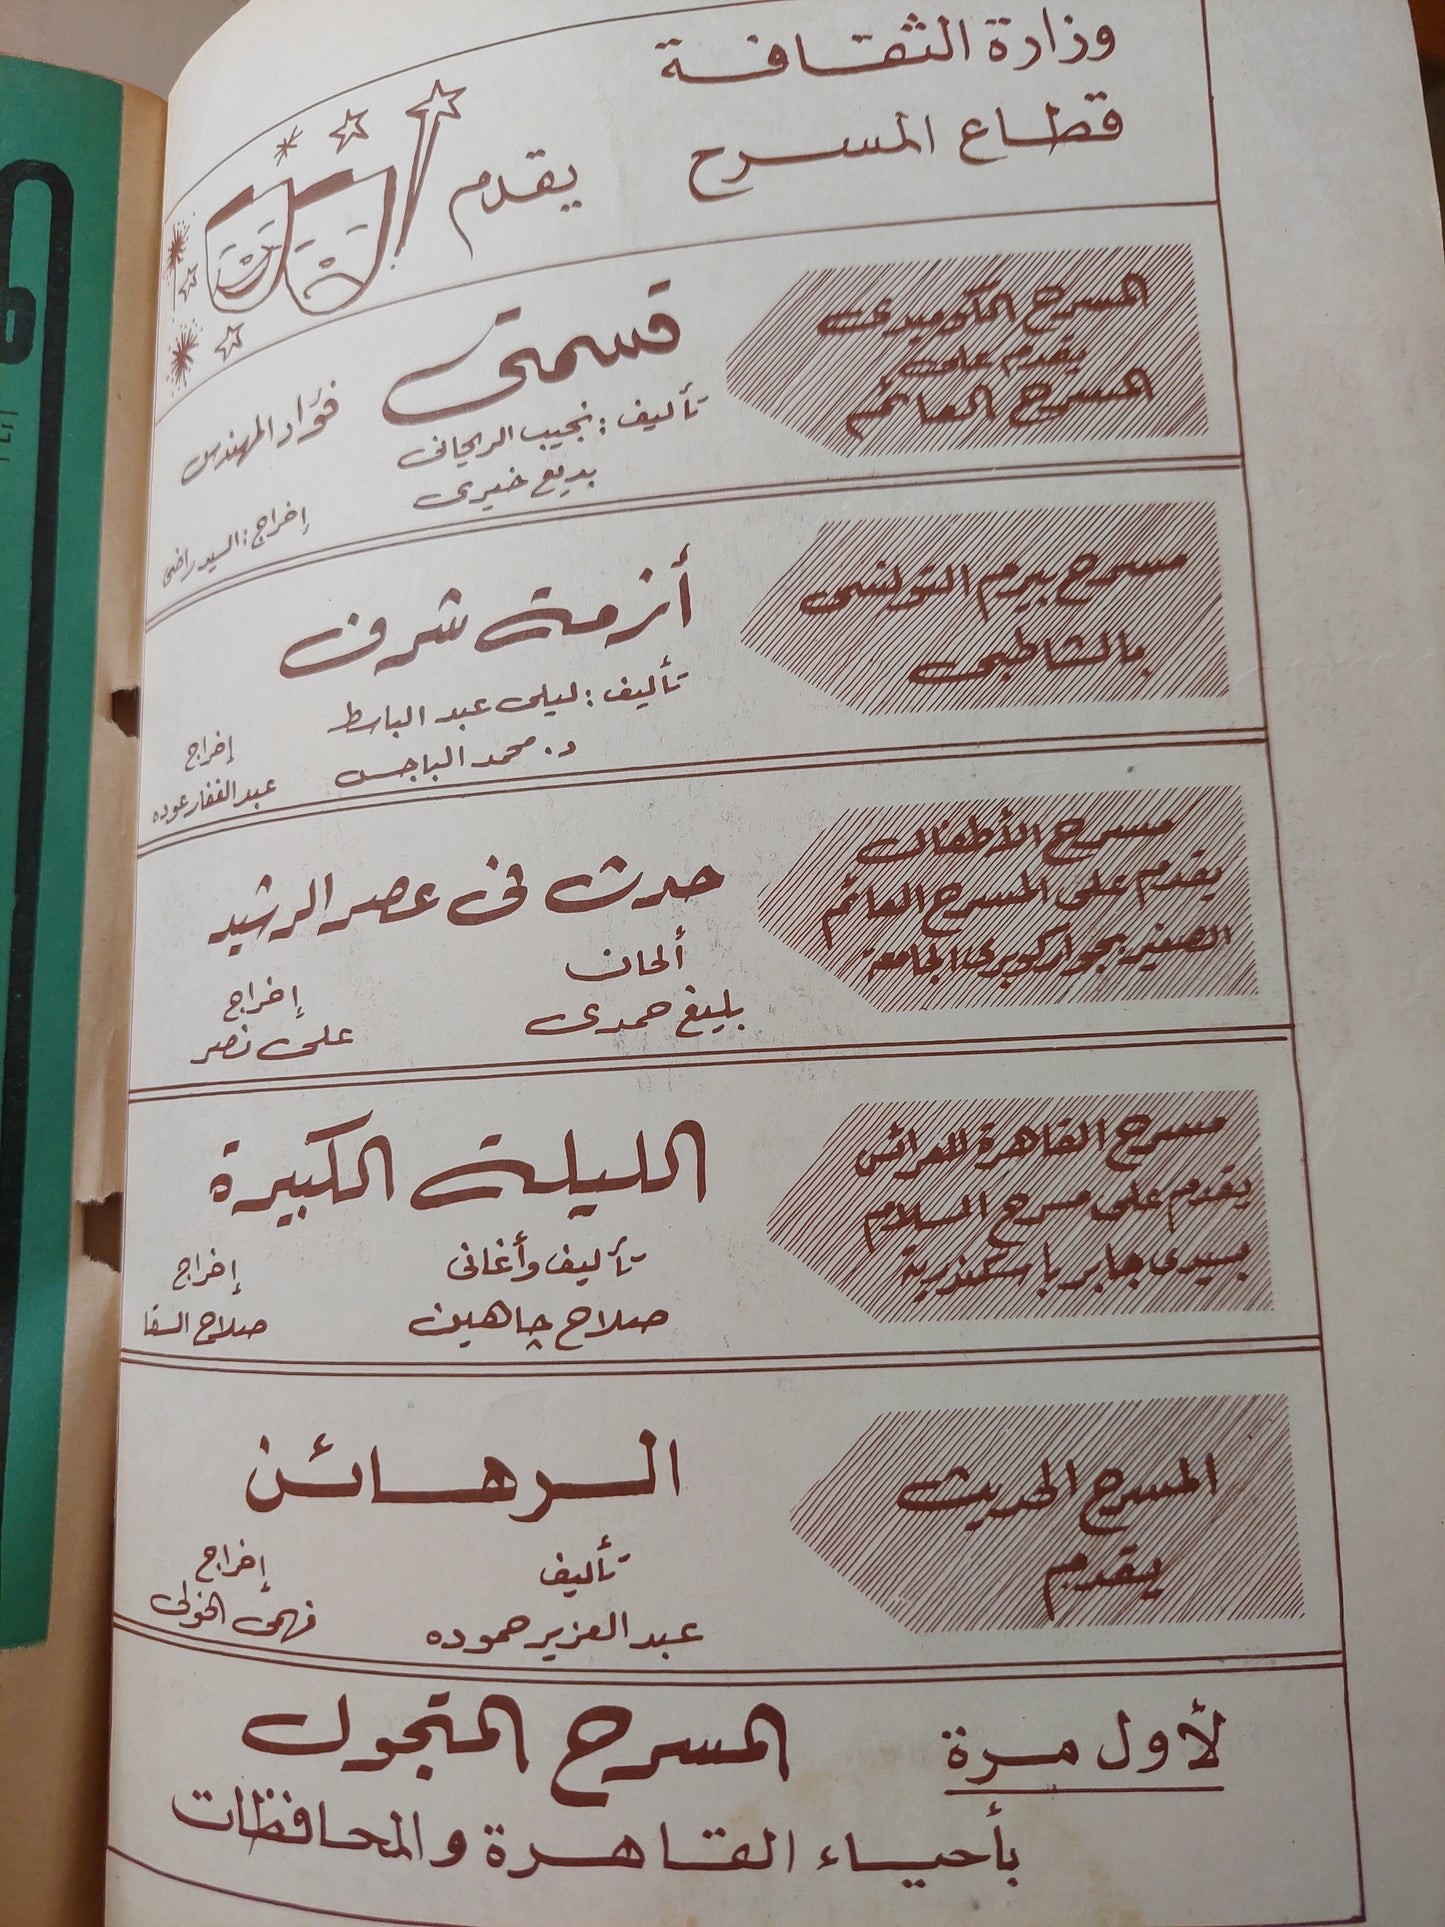 وزارة الثقافة
قطاع المسرح يقدم
المسرح الكوميدى
يقدم على
المسرح العائم
قسمتى
فؤاد المهندس
تأليف : نجيب الريحانى
بديع خيرى
إخراج : السيد راضى
مسرح بيرم التونسى
بالشاطبى
أزمة شرف
تأليف : ليلى عبد الباسط
د. محمد الباجس
إخراج
عبد الغفار عوده
مسرح الأطفال
يقدم على المسرح العائم
الصغير بجوار كوبرى الجامعة
حدث فى عصر الرشيد
ألحان
بليغ حمدى
إخراج
على نصر
مسرح القاهرة للعرائس
يقدم على مسرح السلام
بسيدى جابر باسكندرية
الليلة الكبيرة
تأليف وأغانى
صلاح چاهين
إخراج
صلاح السقا
المسرح الحديث
يقدم
الرهائن
تأليف
عبد العزيز حموده
إخراج
فهمى الخولى
لأول مرة المسرح المتجول
بأحياء القاهرة والمحافظات